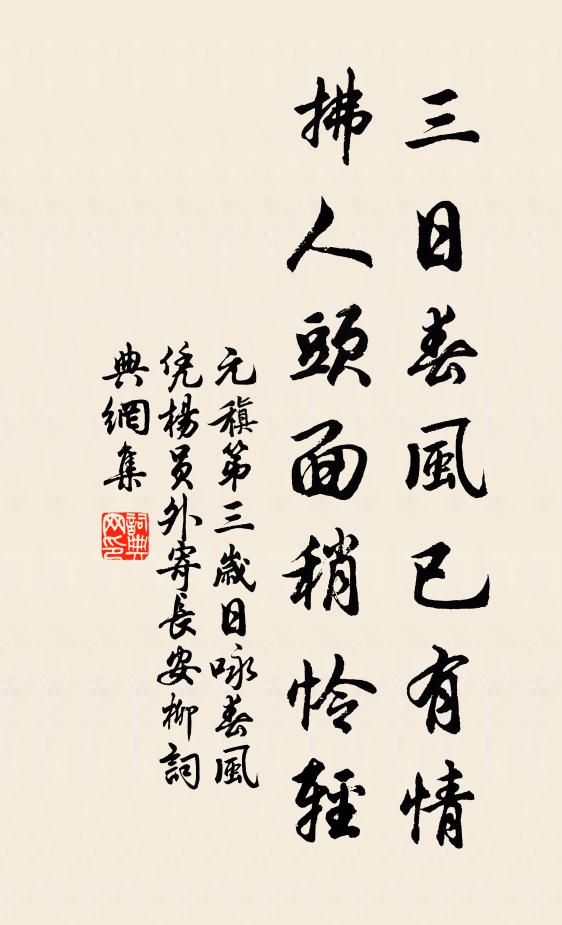 三日春風已有情
拂人頭面稍怜輕
元稹第三歲日咏春風
凭楊員外寄長安柳詞
典網集
詞典網印